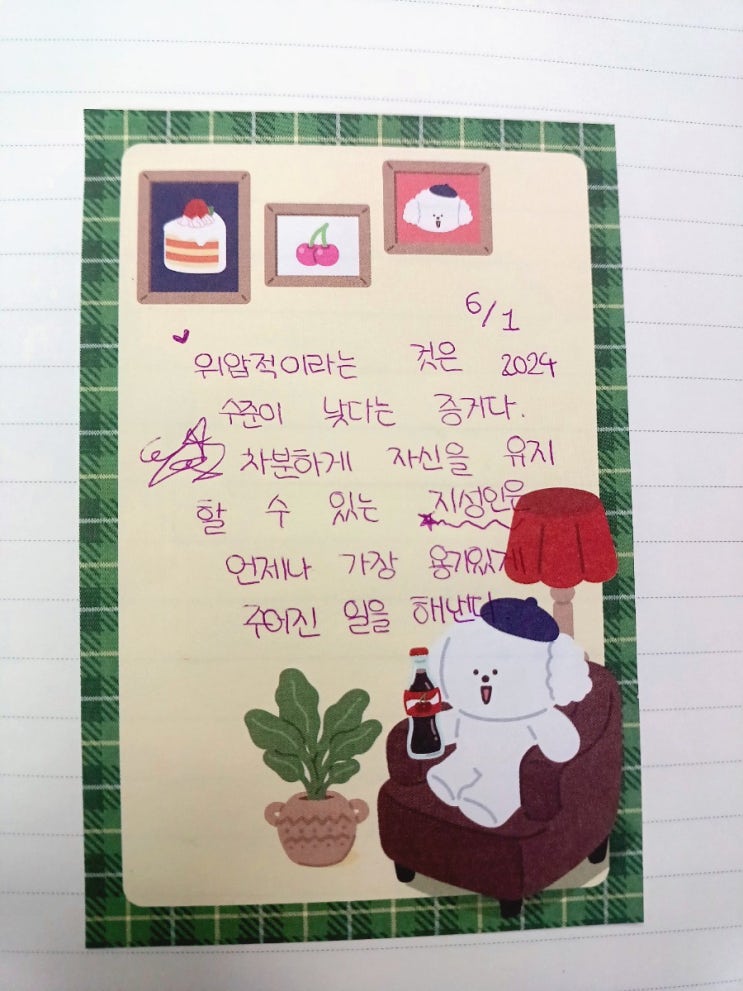 6/1
위압적이라는 것은 2024
수준이 낮다는 증거다.
차분하게 자신을 유지
할 수 있는 지성인은
언제나 가장 용기있게
주어진 일을 해낸다.